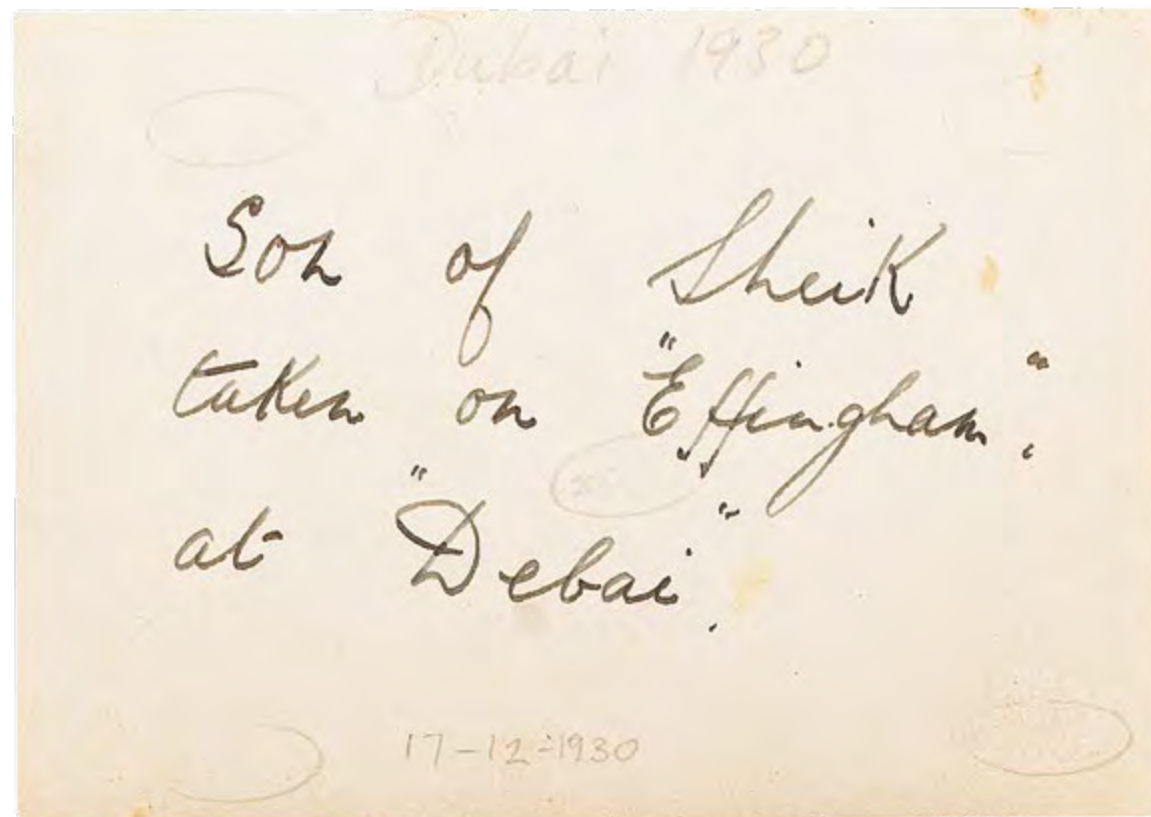 Dubai 1930
Son of Sheik
taken on "Effingham".
at "Debai".
17-12-1930